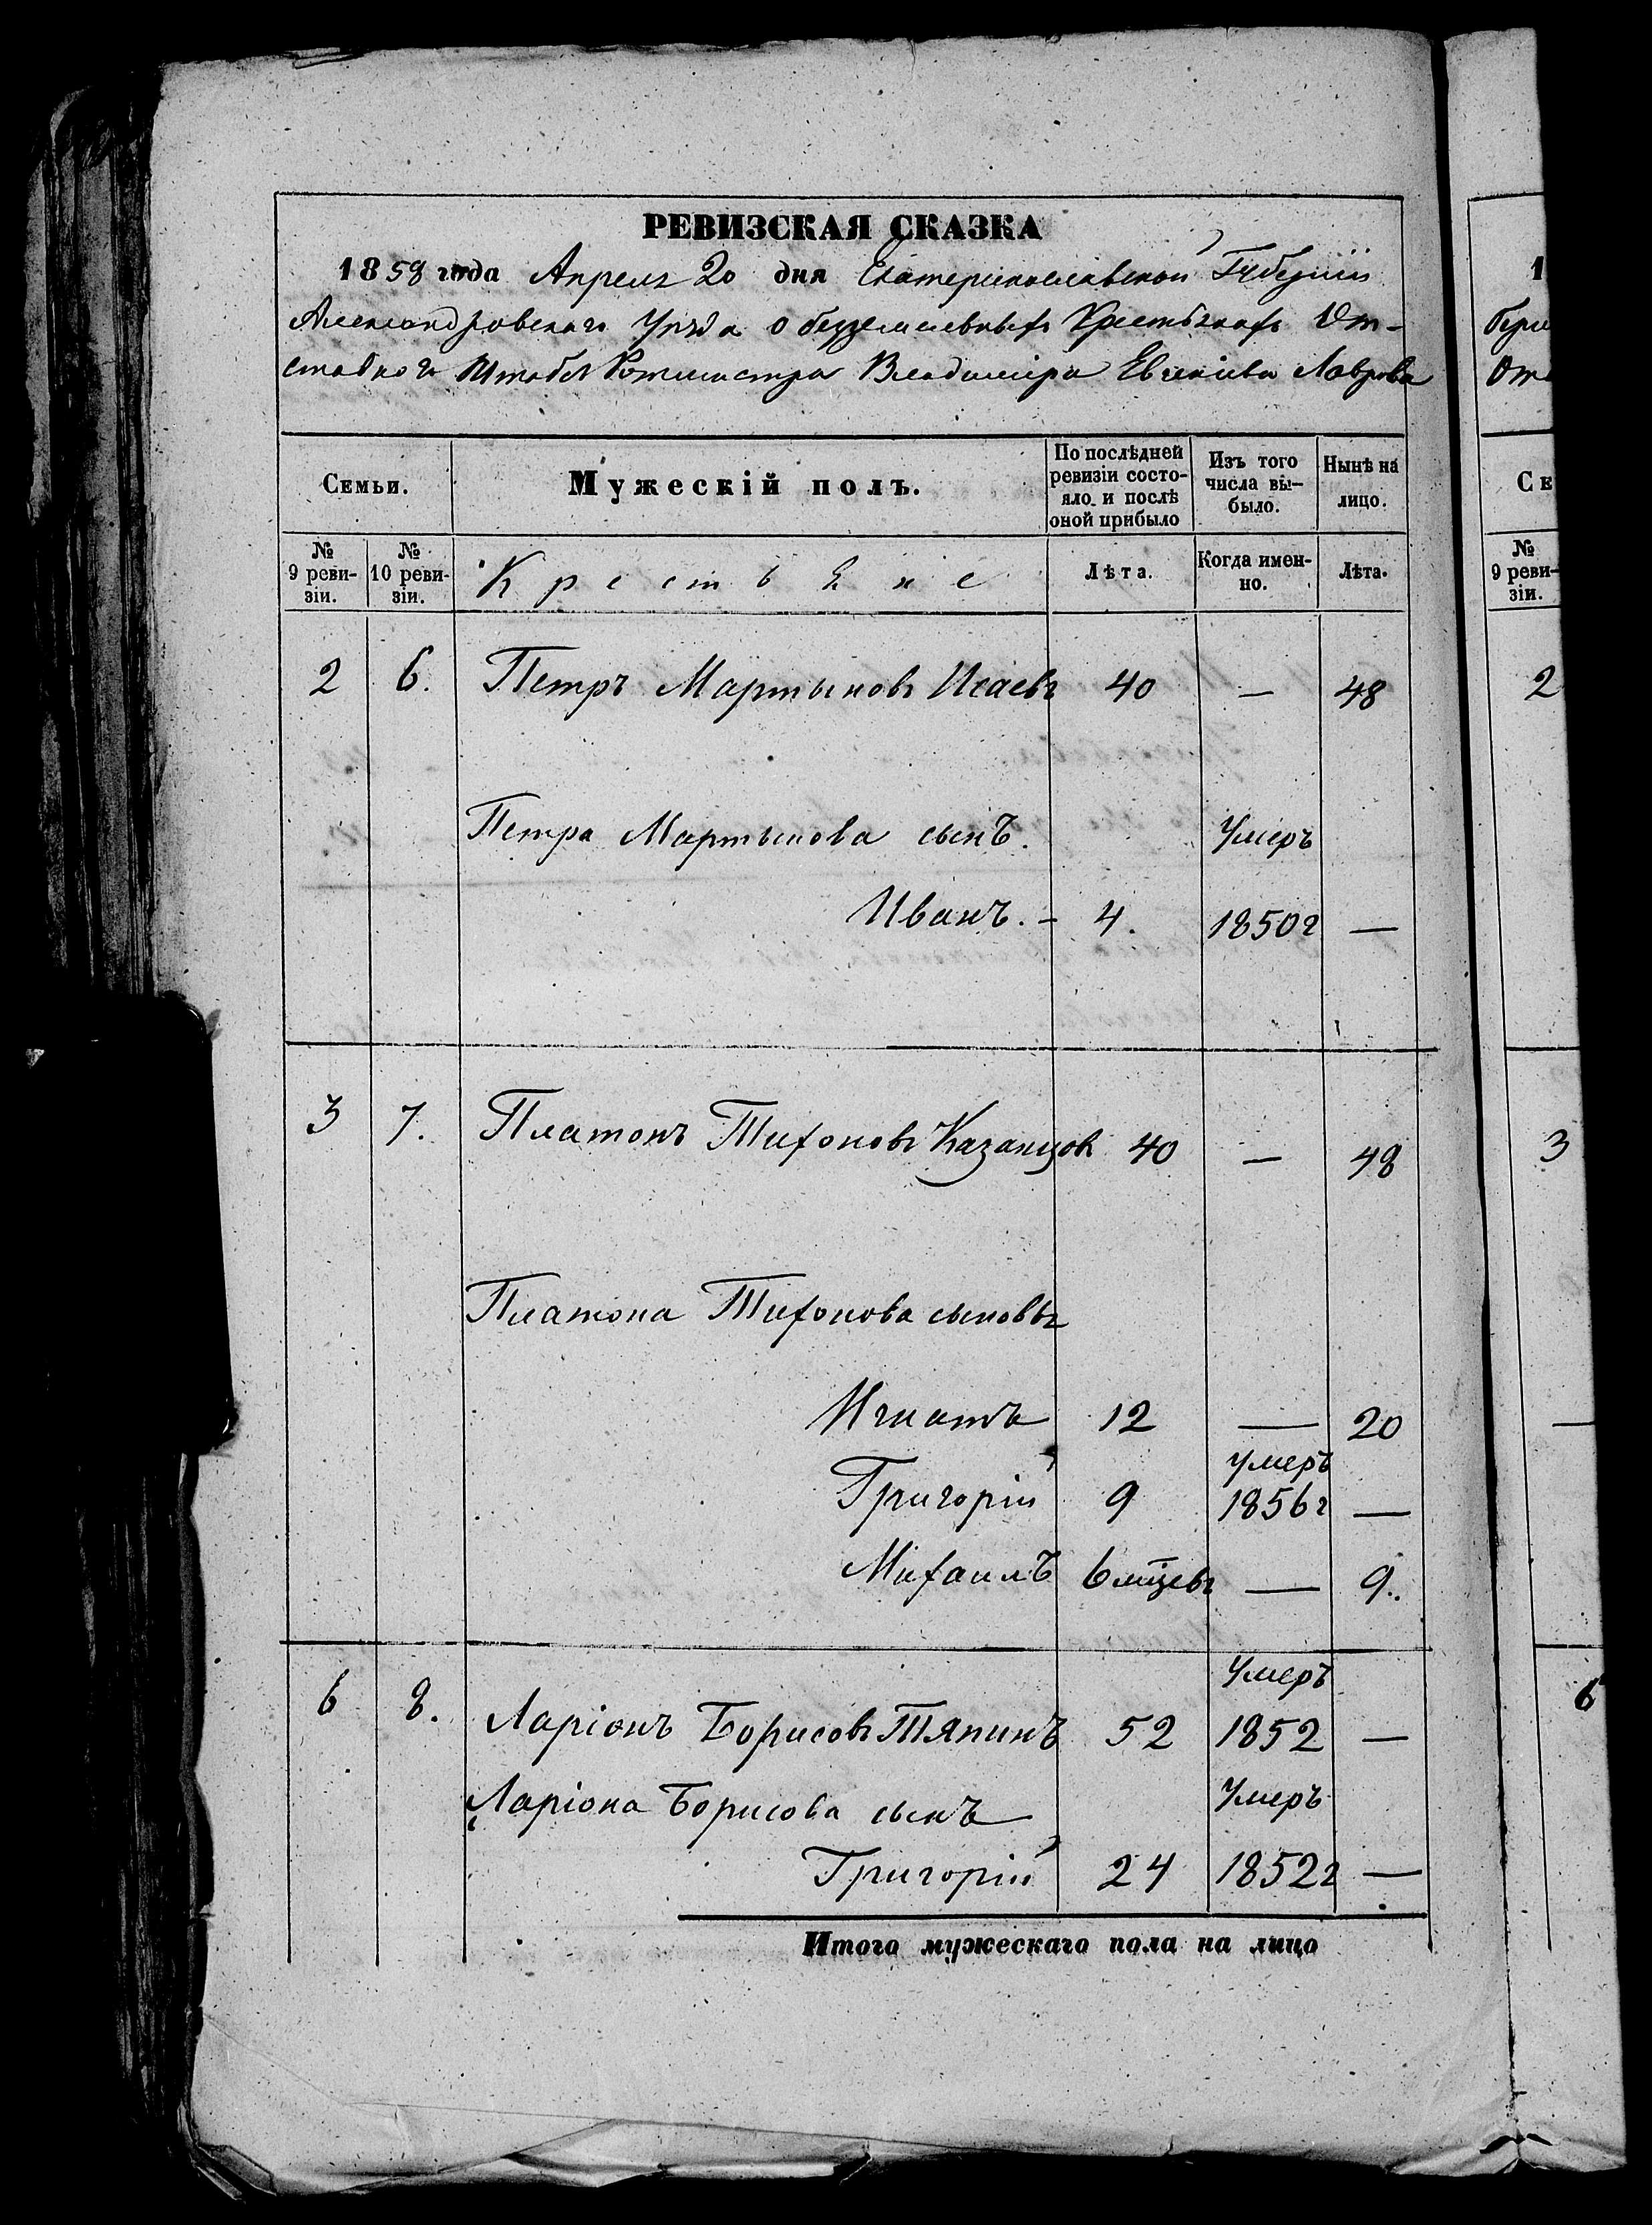 РЕВИЗСКАЯ СКАЗКА
1858 года Апреля 20 дня Екатеринославской Губерніи
Александровскаго Уѣзда о безземельныхъ Крестьянахъ От-
ставнаго Штабсъ Ротмистра Владиміра Лаврова
Семьи.
Мужескій полъ.
По послѣдней ревизіи состо-
яло и послѣ оной прибыло
Изъ того числа вы-
было.
Нынѣ на лицо.
№ 9 реви-
зіи.
№ 10 реви-
зіи.
Крестьяне
Лѣта.
Когда имен-
но.
Лѣта.
2 6. Петръ Мартыновъ Исаевъ 40 — 48
Петра Мартынова сынъ. Умеръ
Иванъ. - 4. 1850г —
3 7. Платонъ Тихоновъ Казанцовъ 40 — 48
Платона Тихонова сыновья
Игнатъ 12 — 20
Умеръ
Григорій 9 1856г —
Михаилъ 6 мцевъ — 9.
Умеръ
6 8. Ларіонъ Борисовъ Тяпинъ 52 1852 —
Ларіона Борисова сынъ Умеръ
Григорій 24 1852г —
Итого мужескаго пола на лицо
1
От
Се
№
9 реви-
зіи.
2
3
6